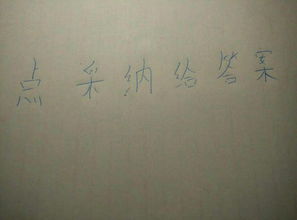 点采纳给答案